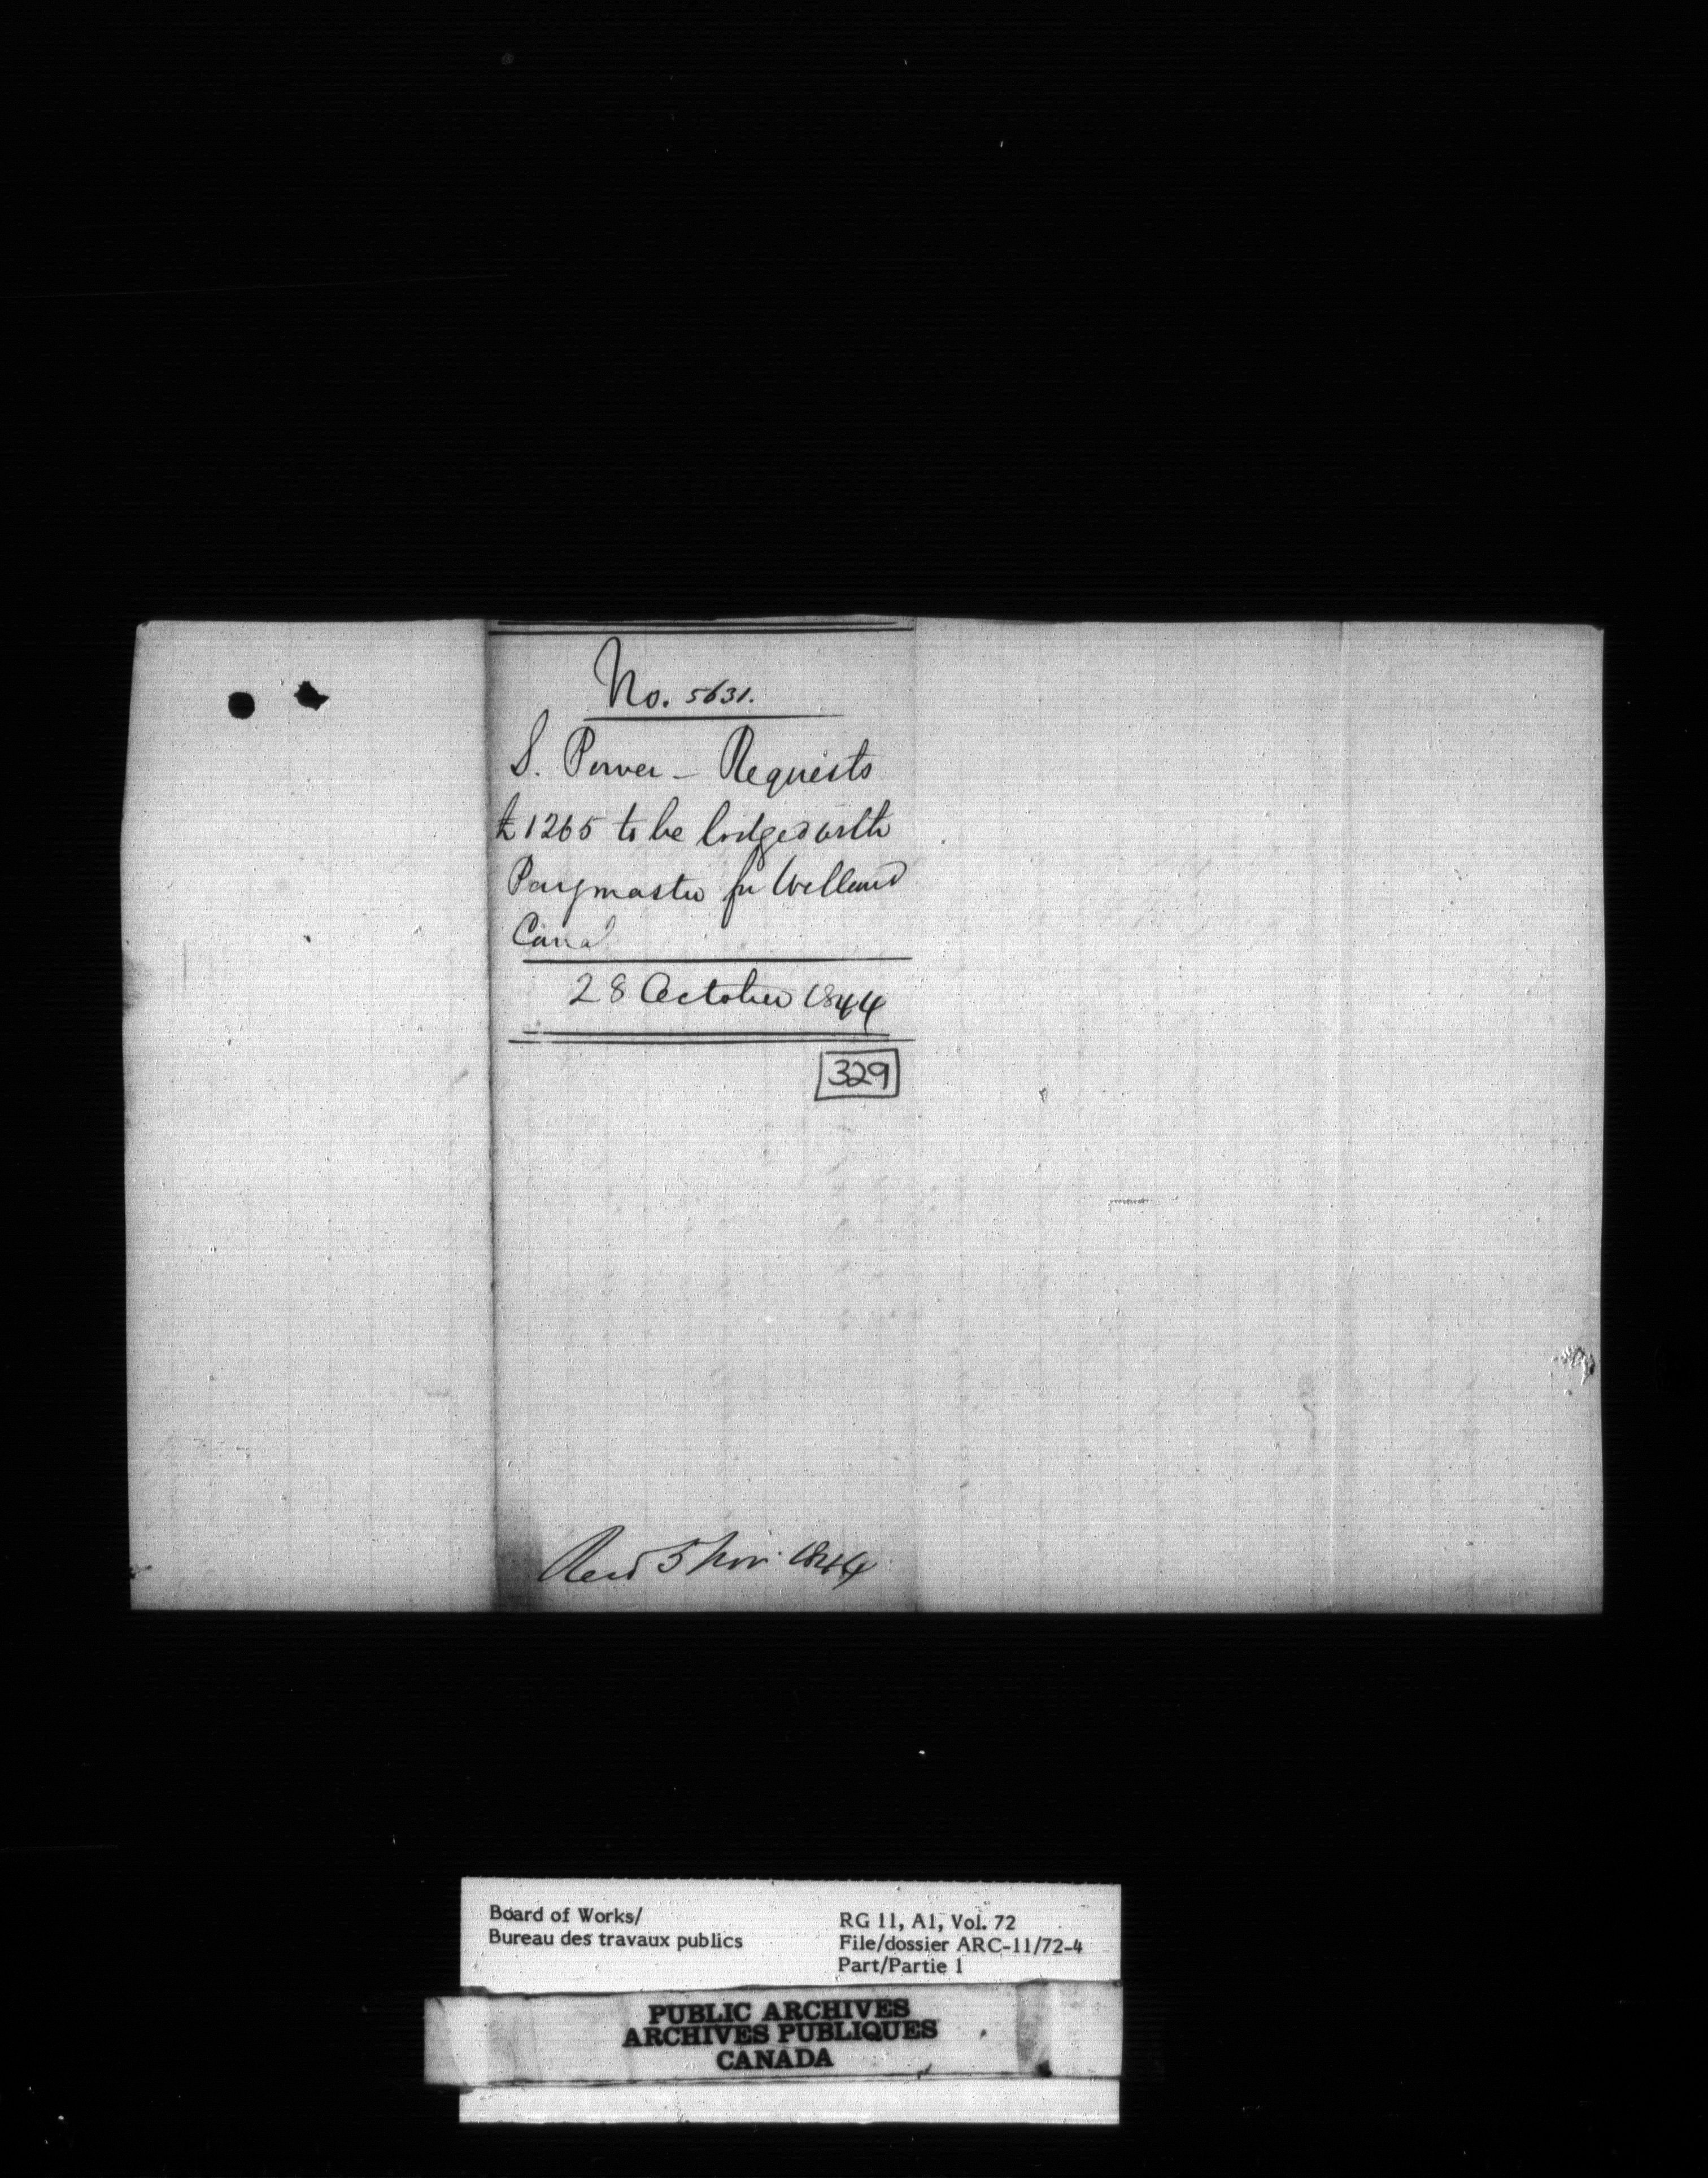 No. 5631.
S. Power - Requests
£1265 to be lodged with
Paymaster for Welland
Canal
28 October 1844
329
Recd 5 Nov. 1844
Board of Works/
Bureau des travaux publics
RG 11, A1, Vol. 72
File/dossier ARC-11/72-4
Part/Partie 1
PUBLIC ARCHIVES
ARCHIVES PUBLIQUES
CANADA